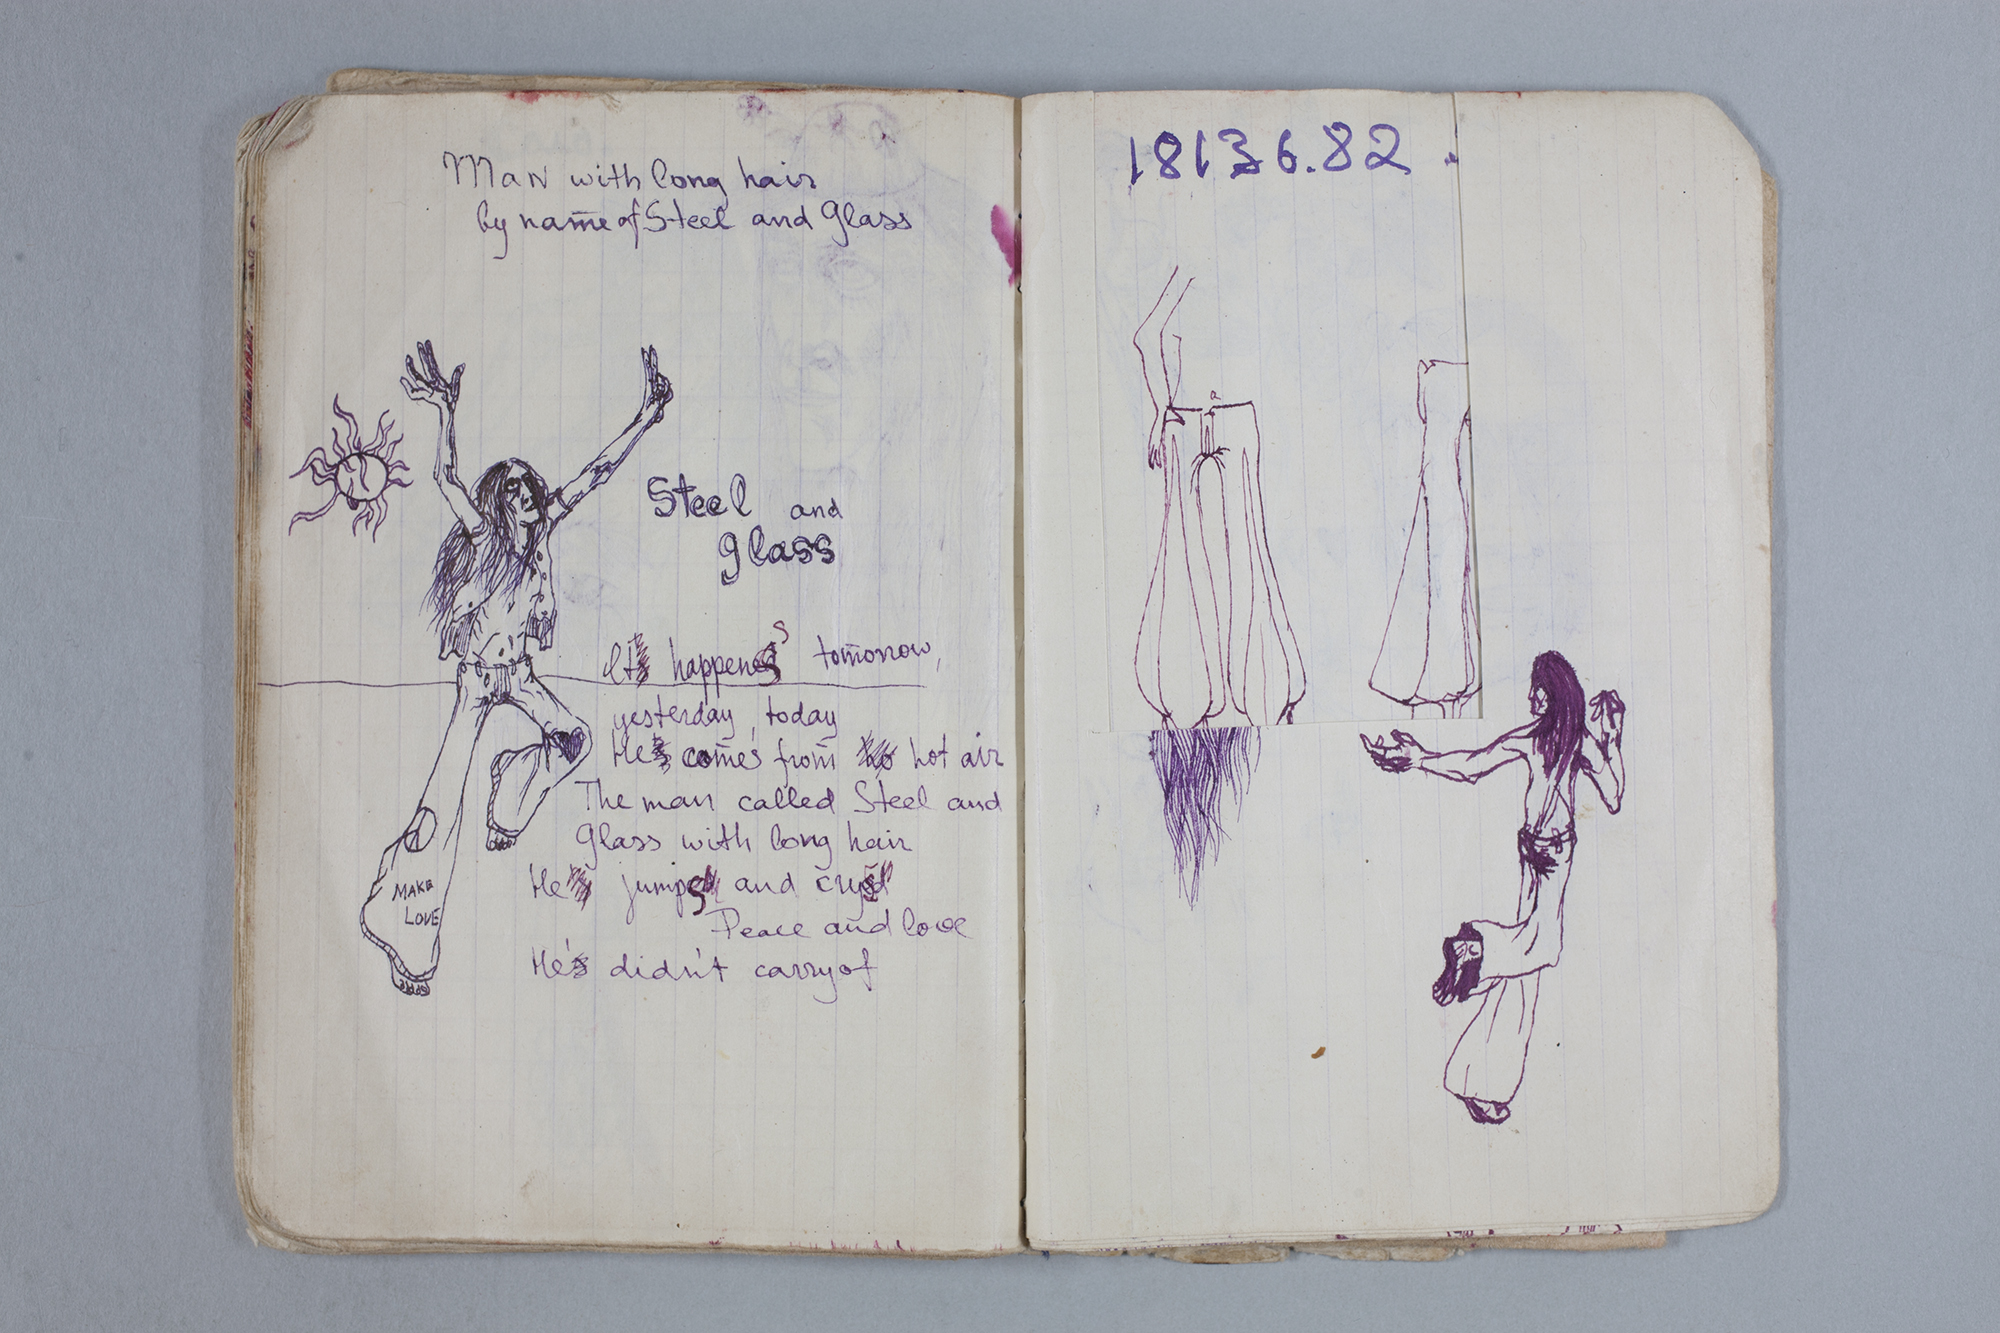 Man with long hair
by name of Steel and Glass
Steel and
glass
It happens tomorrow,
yesterday, today
He comes from hot air
The man called Steel and
Glass with long hair
He jumps and crys
Peace and love
He didn't carry of
MAKE
LOVE
18136.82